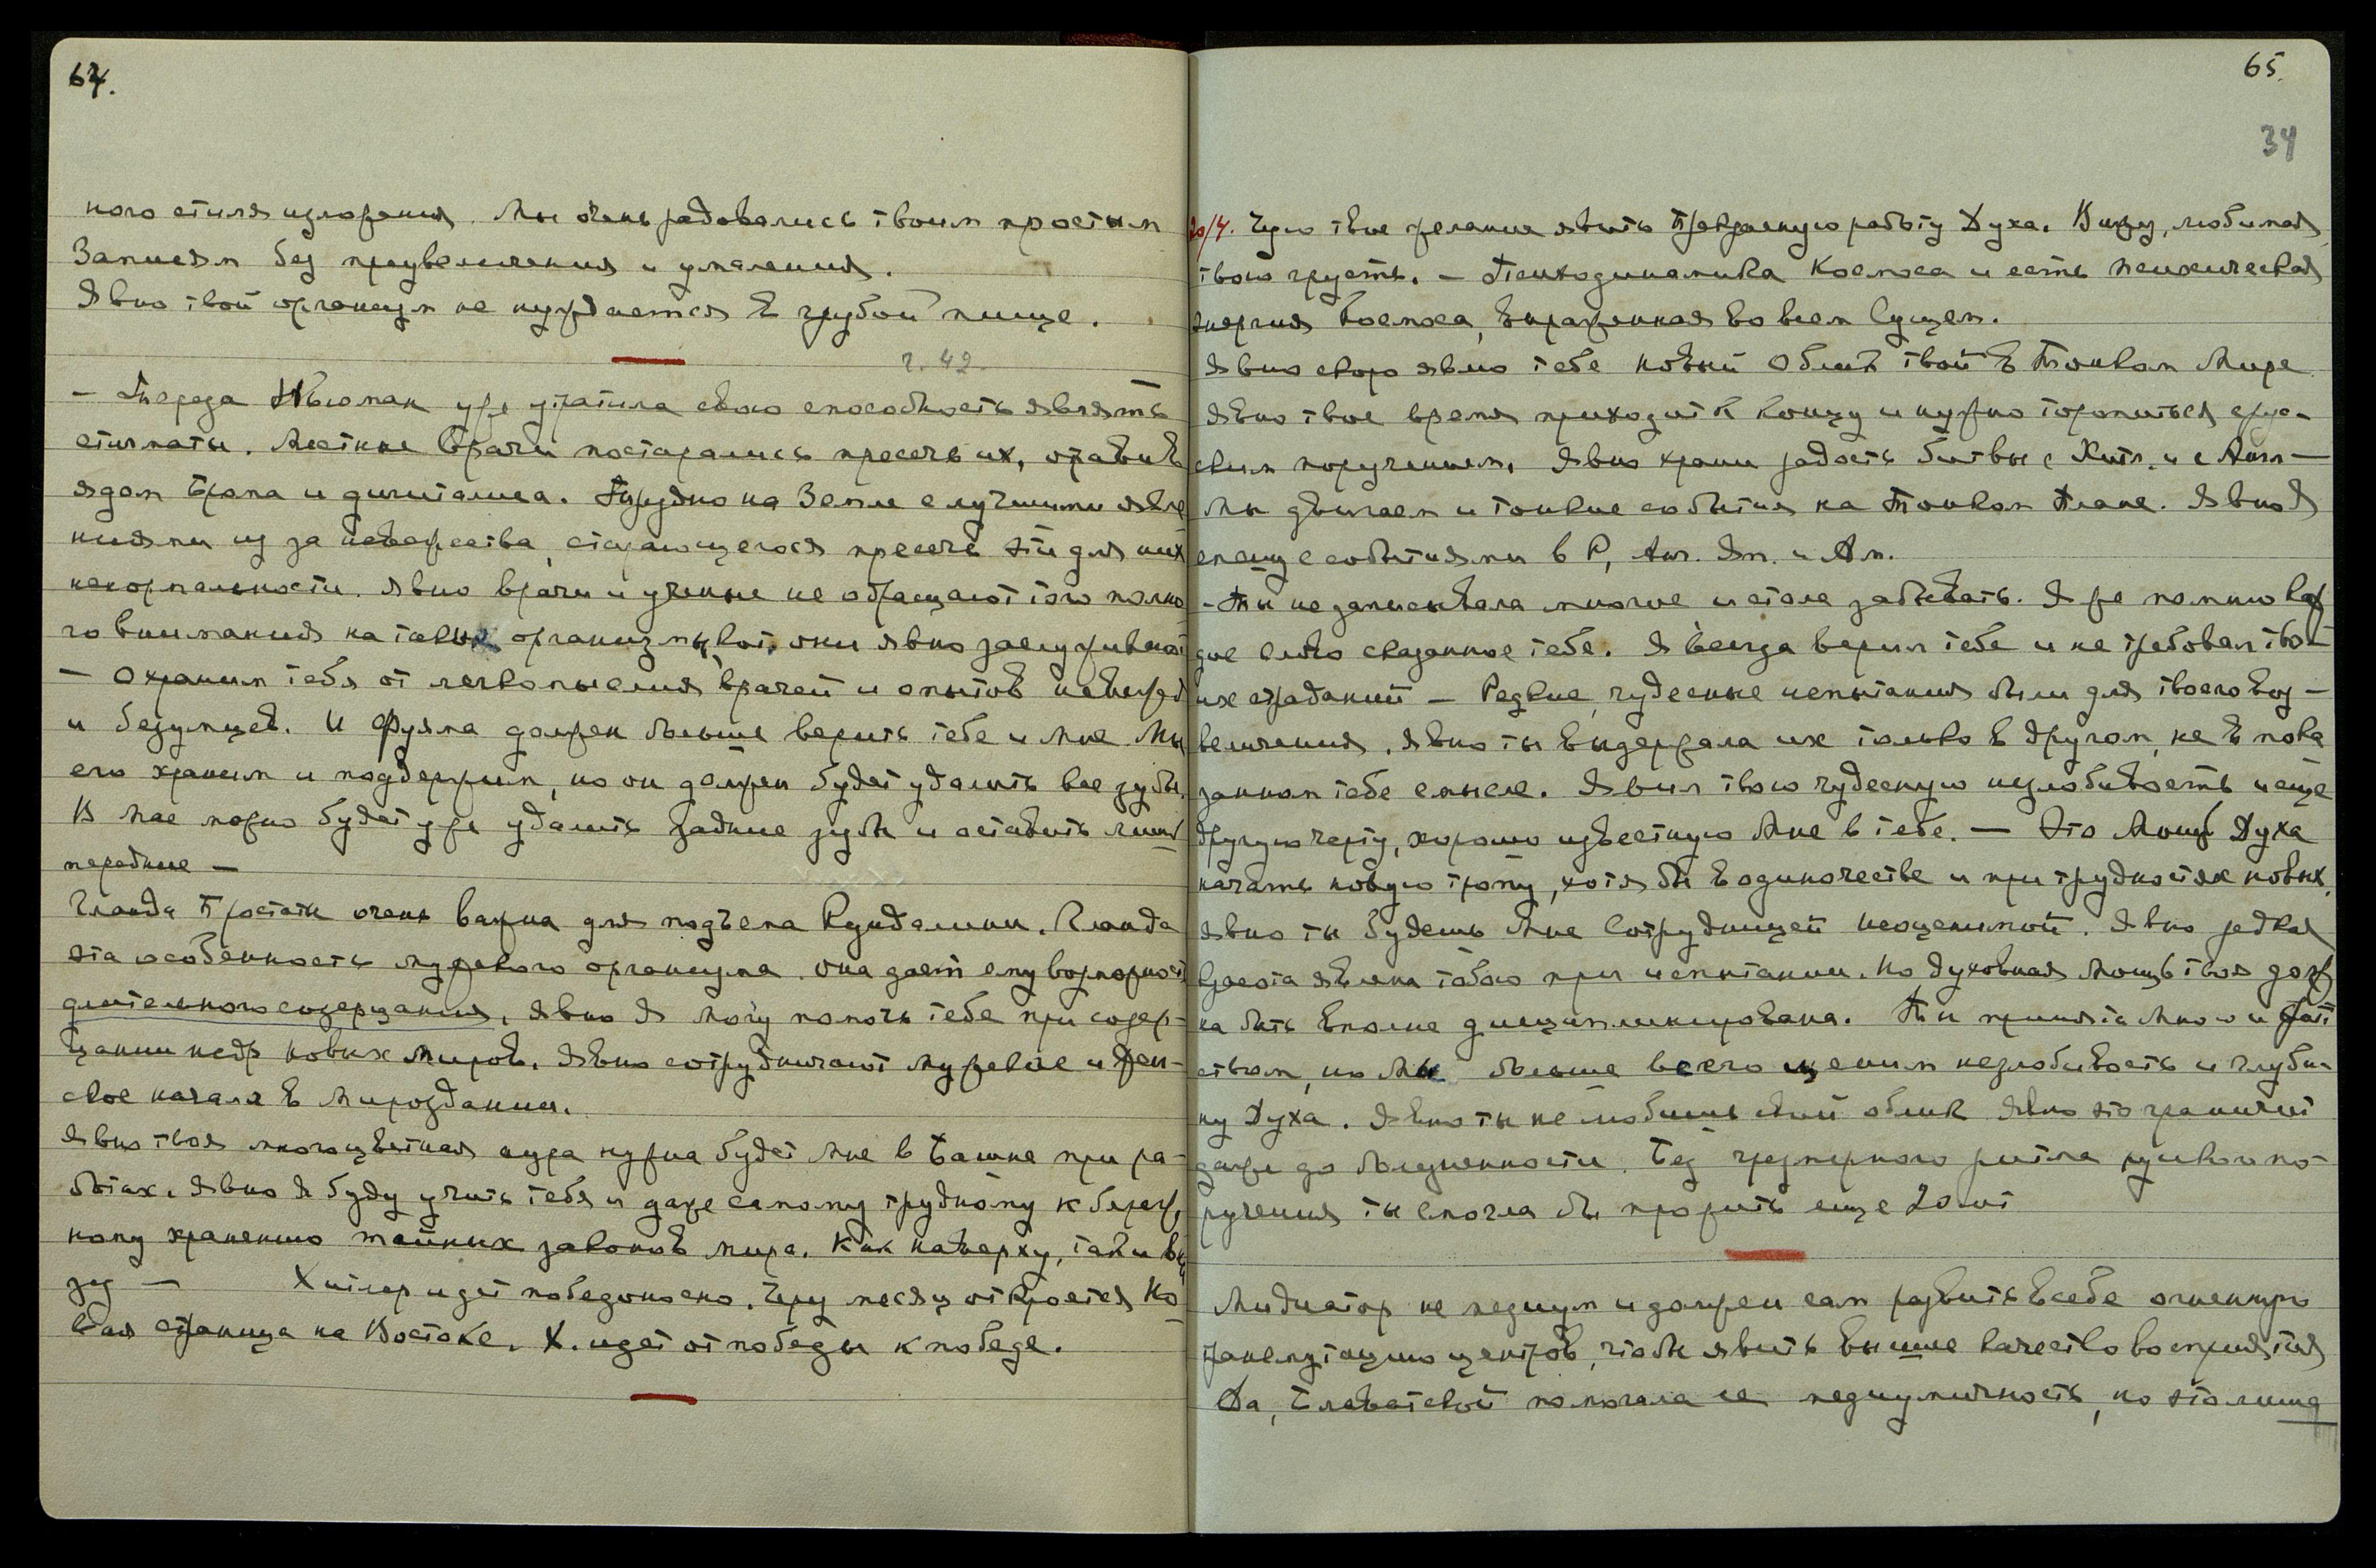 64.
ного стиля изложения. Мы очень радовались твоим простым
Записям без преувеличения и умаления.
Явно твой организм не нуждается в грубой пище.
г. 42
— Тереза Ньюман уже утратила свою способность являть
стигматы. Местные врачи постарались пресечь их, отравив
ядом брома и дигиталиса. Трудно на Земле с лучшими явле
ниями из за невежества, старающегося пресечь эти для них
ненормальности. Явно врачи и ученые не обращают того полно
го внимания на таких организмы, кот. они явно заслуживают
— Охраним тебя от легкомыслия врачей и опытов невежд
и безумцев. И Фуяма должен больше верить тебе и Мне. Мы
его храним и поддержим, но он должен будет удалить все зубы.
В Мае можно будет уже удалить задние зубы и оставить лишь
передние —
Гланда Простаты очень важна для подъема Кундалини. Гланда
эта особенность мужского организма. она дает ему возможност
длительного созерцания. Явно Я могу помочь тебе при созер-
цании недр новых миров. Явно сотрудничают мужское и жен-
ское начала в Мироздании.
Явно твоя многоцветная аура нужна будет Мне в Башне при ра-
ботах. Явно Я буду учить тебя и даже самому трудному к береж,
ному хранению тайных законов мира. Как наверху, так и вни
зу — Хитлер идет победоносно. Чрез месяц откроется Но
вая страница на Востоке. Х. идет от победы к победе.
65.
34
20/4. Чую твое желание явить Прекрасную работу Духа. Вижу, любимая
твою грусть. — Психодинамика Космоса и есть психическая
энергия Космоса, выраженная во всем Сущем.
Явно скоро явлю тебе новый Облик твой в Тонком Мире
Явно твое время приходит к концу и нужно торопиться с рус-
ским поручением. Явно храни радость битвы с Хитл. и с Англ —
Мы двигаем и тонкие события на Тонком Плане. Явно Я
спешу с событиями в Р, Анг. Яп. и Ам.
— Ты не записывала многое и стала забывать. Я же помню каж
дое слово сказанное тебе. Я всегда верил тебе и не требовал тво-
их страданий — Редкие, чудесные испытания были для твоего воз-
величения. Явно ты выдержала их только в другом, не в пока
занном тебе смысле. Явил твою чудесную незлобивость и еще
другую черту, хорошо известную Мне в тебе. — Это Мощь Духа
начать новую тропу, хотя бы в одиночестве и при трудностях новых.
Явно ты будешь Мне Сотрудницей неоценимой. Явно редкая
красота явлена тобою при испытании. Но духовная мощь твоя долж
на быть вполне дисциплинирована. Ты принята Много и
ством, но Мы больше всего ценим незлобивость и глуби-
ну Духа. Явно ты не любишь свой облик Явно это граничит
даже до болезненности. Без чрезмерного ритма русского по-
ручения ты смогла бы прожить еще 20 лет
Мидиатор не медиум и должен сам развить в себе огненную
трансмутацию центров, чтобы явить высшее качество восприятия
Да, Блаватской помогала ее медиумичность, но это лишь